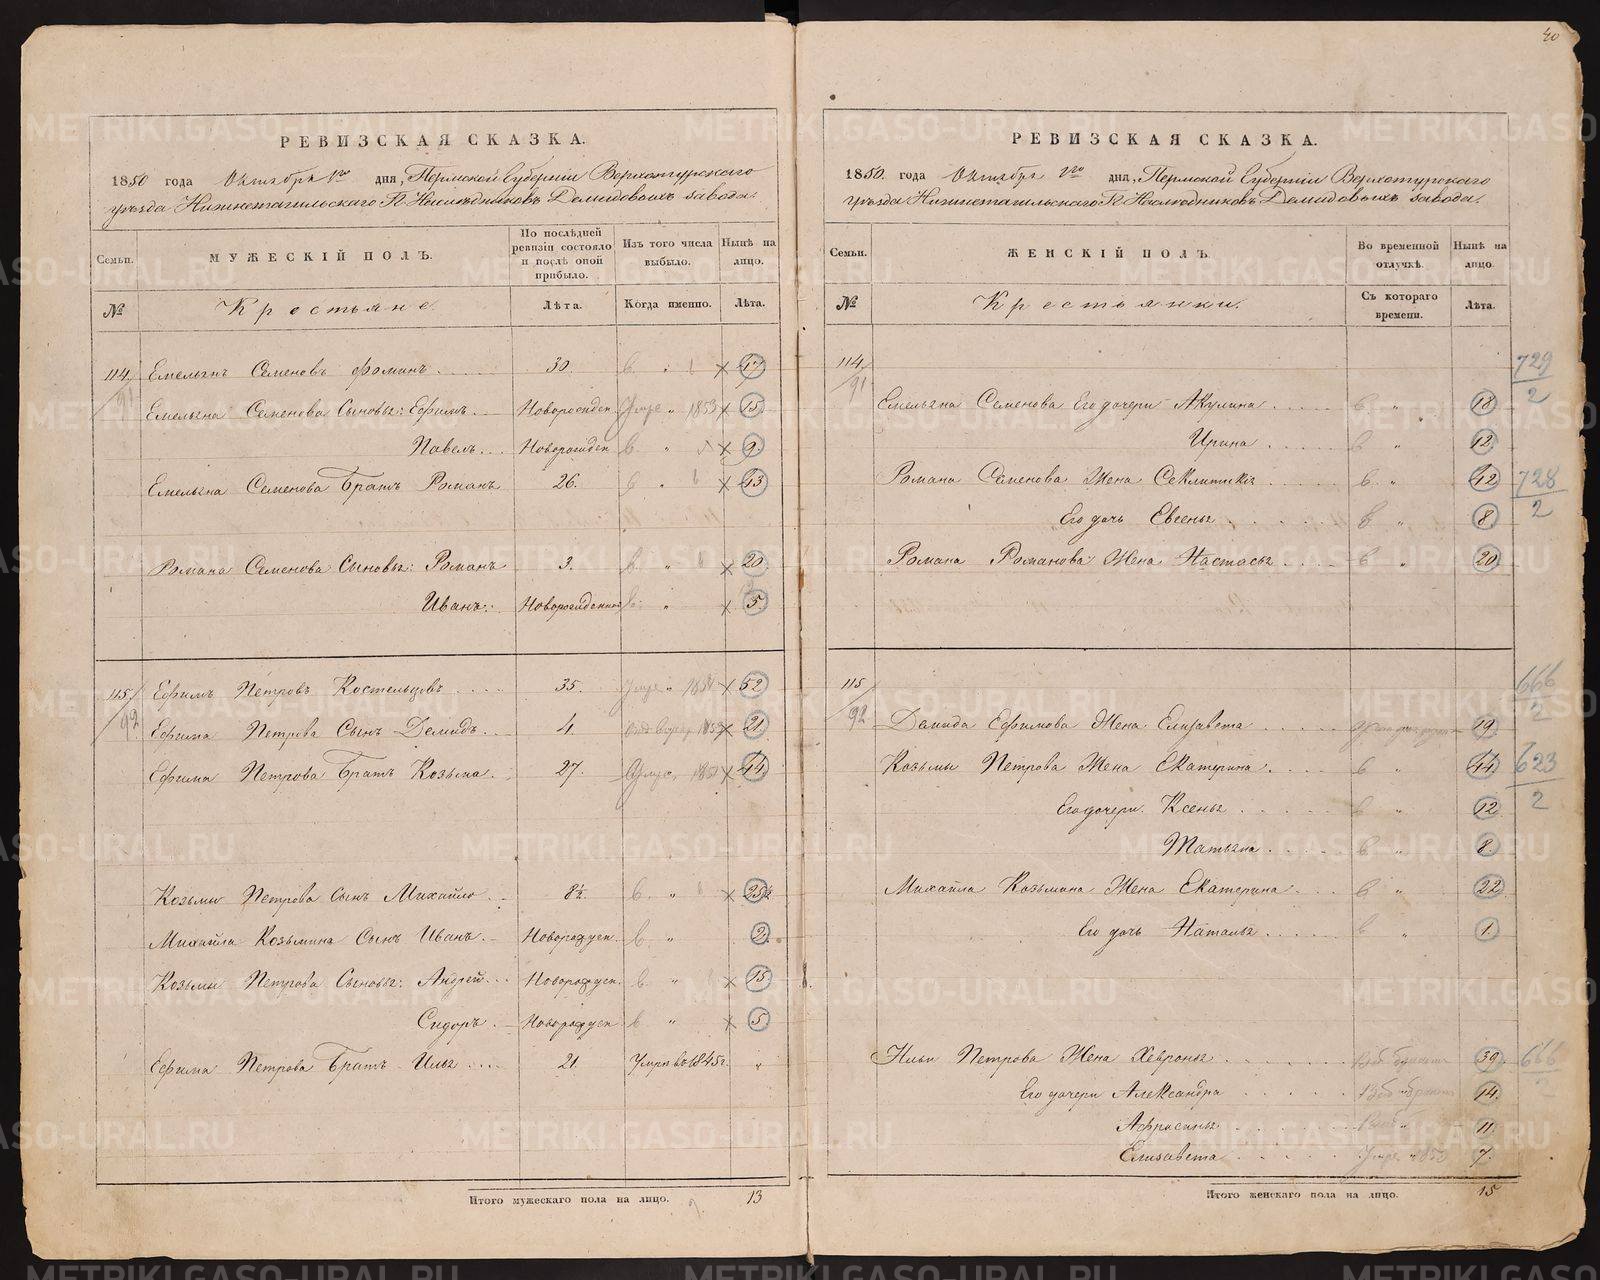 40
РЕВИЗСКАЯ СКАЗКА.
1850 года Октября 1го дня, Пермской Губернии Верхотурскаго
уѣзда Нижнетагильскаго Г. Наслѣдниковъ Демидовыхъ завода.
Семьи. МУЖЕСКІЙ ПОЛЪ. По послѣдней ревизіи состояло и послѣ оной прибыло. Изъ того числа выбыло. Нынѣ на лицо.
№ Крестьяне. Лѣта. Когда именно. Лѣта.
114/91 Емельянъ Семеновъ Фоминъ 30. 47
Емельяна Семенова Сыновья: Ефимъ Новорожден. Умре 1853 15
Павелъ Новорожден. 9.
Емельяна Семенова Братъ Романъ 26. 43
Романа Семенова Сыновья: Романъ 3. 20
Иванъ Новорожденной 5
115/92 Ефимъ Петровъ Костельцовъ 35. 52
Ефима Петрова Сынъ Демидъ 4. 21
Ефима Петрова Братъ Козьма 27. 44
Козьмы Петрова Сынъ Михайло 8½. 25½
Михайла Козьмина Сынъ Иванъ Новорожден. 2.
Козьмы Петрова Сыновья: Андрей Новорожден. 15
Сидоръ Новорожден 5
Ефима Петрова Братъ Илья 21. Умръ въ 1845 г. "
Итого мужескаго пола на лицо. 13
РЕВИЗСКАЯ СКАЗКА.
1850. года Октября 1го дня, Пермской Губерніи Верхотурскаго
уѣзда Нижнетагильскаго Г. Наслѣдниковъ Демидовыхъ завода.
Семьи. ЖЕНСКІЙ ПОЛЪ Во временной отлучкѣ. Нынѣ на лицо
№ Крестьянки. Съ котораго времени. Лѣта.
114/91
729/2
Емельяна Семенова Его дочери Акулина 18
Ирина 12
Романа Семенова Жена Секлитикія 42 728/2
Его дочь Евгенья 8
Романа Романова Жена Настасья 20
115/92 666/2
Демида Ефимова Жена Елизавета 19
Козьмы Петрова Жена Екатерина 44 623/2
Его дочери Ксенья 12
Татьяна 8
Михайла Козьмина Жена Екатерина 22
Его дочь Наталья 1.
Ильи Петрова Жена Хевронья 39 666/2
Его дочери Александра 14.
Афросинья 11
Елизавета Умре 1850 7.
Итого женскаго пола на лицо. 15
METRIKI.GASO-URAL.RU